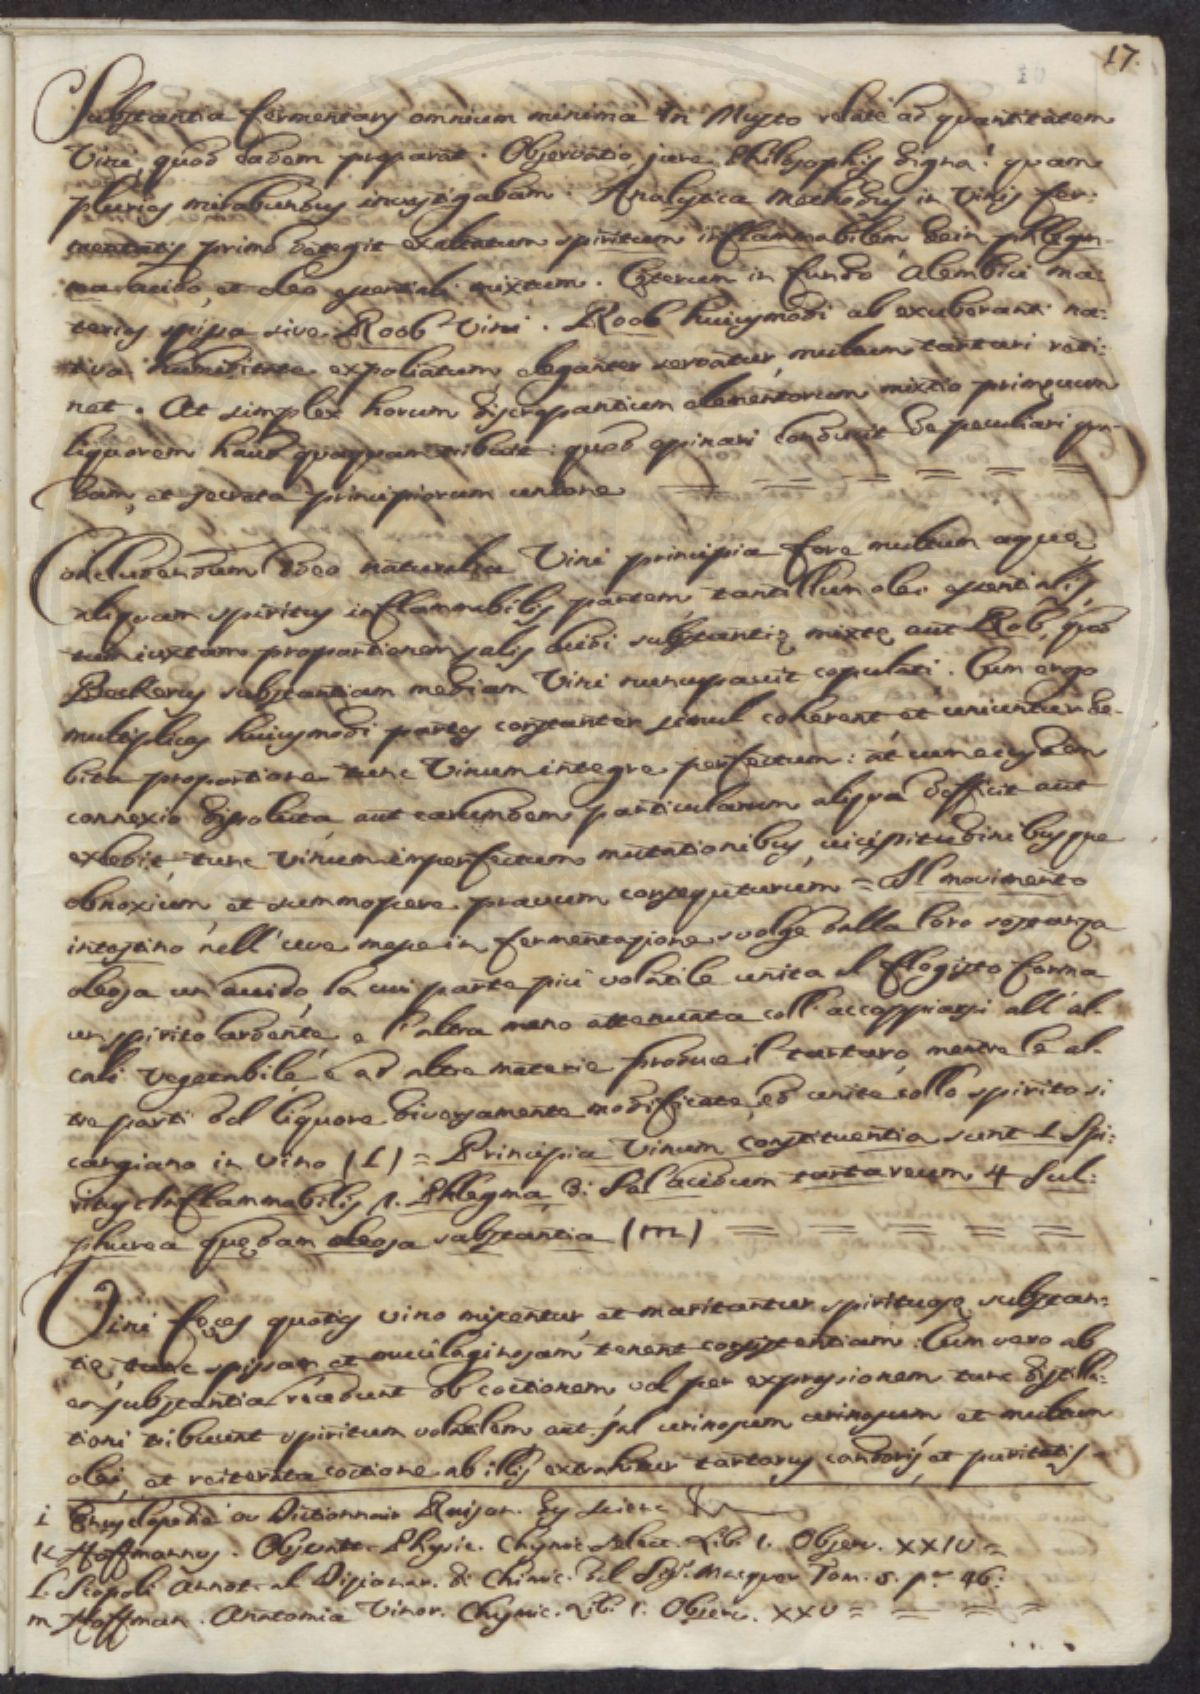 17.
Substantia fermentans omnium minima in Mysto relate ad quantitatem
Vini, quod eadem præparat. Observatio jure Philosophis digna! quam
pluries mirabundus investigabam. Analytica methodus in Vinis fer-
mentatis primo detegit exaltatum spiritum inflammabilem, dein phlegm-
ma acido, et oleo essentiali mixtum. Ceterum in fundo Alembici ma-
teries spissa sive Roob Vini. Roob huiusmodi ab exuberanti na-
tiva humiditate expoliatum eleganter servatur, multum tartari reti-
net. At simplex horum discrepantium elementorum mixtio primævum
liquorem haud quaquam tribuit: quod opinari conducit de peculiari qua-
dam, et secreta principiorum unione = = = = = =
Concludendum ideo naturalia Vini principia fore multum aquæ
aliquam spiritus inflammabilis partem tantillum olei essentialis,
cum iuxtam proportionem salis acidi substantiæ mixtæ, aut Rob, quod
Beckerus substantiam mediam Vini nuncupavit copulati. Cum ergo
multiplices huiusmodi partes constanter simul coherent et uniuntur de-
bita proportione tunc Vinum integre perfectum: at cum eiusdem
connexio dissoluta, aut earumdem particularum aliqua defficit aut
excedit, tunc vinum imperfectum mutationibus, vicissitudinibusque
obnoxium, et summopere pravum consequuturum = Il movimento
intestino nell'uve messe in fermentazione svolge dalla loro sostanza
oleosa un acido, la cui parte più volatile unita al flogisto forma
un spirito ardente, e l'altra meno attenuata coll'accoppiarsi all'al-
cali vegetabile, e ad altre materie produce il tartaro, mentre le al-
tre parti del liquore diversamente modificate, ed unite collo spirito si
cangiano in vino (L) = Principia Vinum constituentia sunt 1 Spi-
ritus Inflammabilis 2. Phlegma 3: Sal acidum tartareum 4 Sul-
phurea quædam oleosa substantia (m) = = = = =
Vini feces quotis vino miscentur, et maritantur spirituosæ substan-
tiæ, tunc spissam et mucilaginosam tenent consistentiam: Cum vero ab
ea substantia recedunt ob coctionem vel per expressionem tunc distilla-
tioni tribuunt spiritum volatilem aut sal urinosum urinosum et multum
olei, et reiterata coctione ab illis extrahitur tartarus candoris, et puritatis
i Encyclopedie ou Dictionnair Raison. des scienc
K Hoffmannus. Observat. Physic. Chymic. select. Lib. 1. Observ. XXIV =
L. Scopoli Annot. al Dizionar. di Chimic. del Sigr. Macquer Tom. 5. p. 46:
m Hoffman. Anatomia Vinor. Chymic. Lib. 1. Observ. XXV = = = =